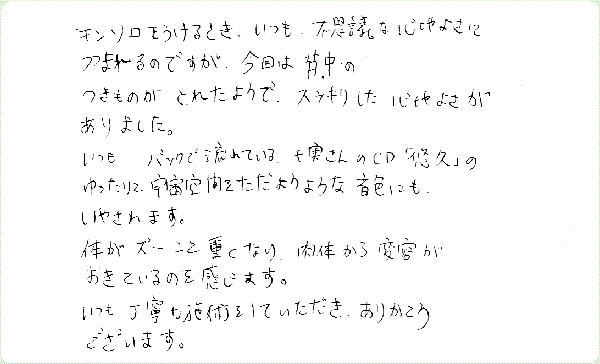 キンソロをうけるとき、いつも、不思議な心地よさに
つつまれるのですが、今回は背中の
つきものが とれたようで、スッキリした心地よさが
ありました。
いつも バックで流れている、 実さんのCD「悠久」の
ゆったりと、宇宙空間をただようような音色にも、
いやされます。
体がズーンと重くなり、肉体から変容が
おきているのを感じます。
いつも丁寧な施術をしていただき、ありがとう
ございます。